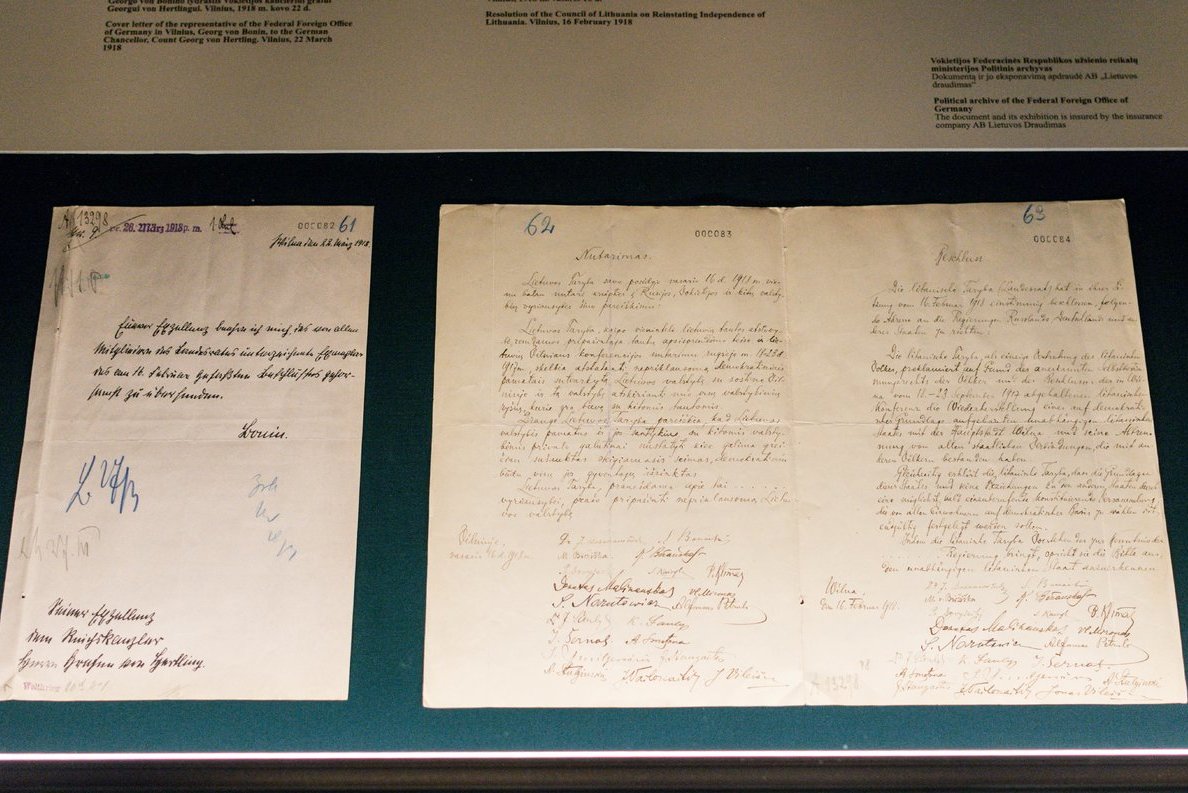 Georgui von Hertlingui. Vilnius, 1918 m. kovo 22 d.
Cover letter of the representative of the Federal Foreign Office
of Germany in Vilnius, Georg von Bonin, to the German
Chancellor, Count Georg von Hertling. Vilnius, 22 March
1918
Resolution of the Council of Lithuania on Reinstating Independence of
Lithuania. Vilnius, 16 February 1918
Vokietijos Federacinės Respublikos užsienio reikalų
ministerijos Politinis archyvas
Dokumentą ir jo eksponavimą apdraudė AB „Lietuvos
draudimas“
Political archive of the Federal Foreign Office of
Germany
The document and its exhibition is insured by the insurance
company AB Lietuvos Draudimas
A 13298
26. März 1918 p. m.
000082 61
Wilna den 22. März 1918.
Euerer Exzellenz beehre ich mich, das von allen
Mitgliedern des Landesrates unterzeichnete Exemplar
des am 16. Februar gefaßten Beschlusses gehor-
samst zu übersenden.
Bonin.
Seiner Exzellenz
dem Reichskanzler
Herrn Grafen von Hertling.
62
000083
Nutarimas.
Lietuvos Taryba savo posėdyje vasario 16 d. 1918 m. vie-
nu balsu nutarė kreiptis į Rusijos, Vokietijos ir kitų valsty-
bių vyriausybes šiuo pareiškimu:
Lietuvos Taryba, kaipo vienintelė lietuvių tautos atstovy-
bė, remdamos pripažintąja tautų apsisprendimo teise ir lie-
tuvių Vilniaus konferencijos nutarimu rugsėjo m. 18-23 d.
1917 m., skelbia atstatanti nepriklausomą, demokratiniais
pamatais sutvarkytą Lietuvos valstybę su sostine Vil-
niuje ir tą valstybę atskirianti nuo visų valstybinių
ryšių, kurie yra buvę su kitomis tautomis.
Drauge Lietuvos Taryba pareiškia, kad Lietuvos
valstybės pamatus ir jos santykius su kitomis valsty-
bėmis privalo galutinai nustatyti kiek galima grei-
čiau sušauktas steigiamasis seimas, demokratiniu
būdu visų jos gyventojų išrinktas.
Lietuvos Taryba, pranešdama apie tai .....
vyriausybei, prašo pripažinti nepriklausomą Lietu-
vos valstybę.
Vilniuje,
vasario 16 d. 1918 m.
J. Basanavičius S. Banaitis
M. Biržiška K. Bizauskas
P. Klimas
Donatas Malinauskas Vl. Mironas
S. Narutowicz Alfonsas Petrulis
K. Šaulys
J. Šernas A. Smetona
J. Vailokaitis J. Vileišis
63
000084
Beschluss
Die litauische Taryba (Landesrat) hat in ihrer Sit-
zung vom 16. Februar 1918 einstimmig beschlossen, folgen-
zu richten:
Die litauische Taryba, als einzige Vertretung des litauischen
Volkes, proklamiert auf Grund des anerkannten Selbstbestim-
mungsrechts der Völker und des Beschlusses der in Wil-
na vom 18.-23 September 1917 abgehaltenen litauischen
Konferenz die Wiederherstellung eines auf demokrati-
scher Grundlage aufgebauten unabhängigen litauischen
Staates mit der Hauptstadt Wilna und seine Abtren-
nung von allen staatlichen Verbindungen, die mit an-
deren Völkern bestanden haben.
Gleichzeitig erklärt die litauische Taryba, dass die Grundlagen
dieses Staates und seine Beziehungen zu den anderen Staaten durch
eine möglichst bald einzuberufende konstituierende Versammlung,
die von allen Einwohnern auf demokratischer Basis zu wählen ist,
endgültig festgelegt werden sollen.
Indem die litauische Taryba
Regierung bringt, spricht sie die Bitte aus,
den unabhängigen litauischen Staat anzuerkennen.
Wilna,
den 16. Februar 1918.
M. Biržiška K. Bizauskas
P. Klimas
Donatas Malinauskas Vl. Mironas
S. Narutowicz Alfonsas Petrulis
K. Šaulys J. Šernas
A. Smetona
J. Vailokaitis Jonas Vileišis
A 13298